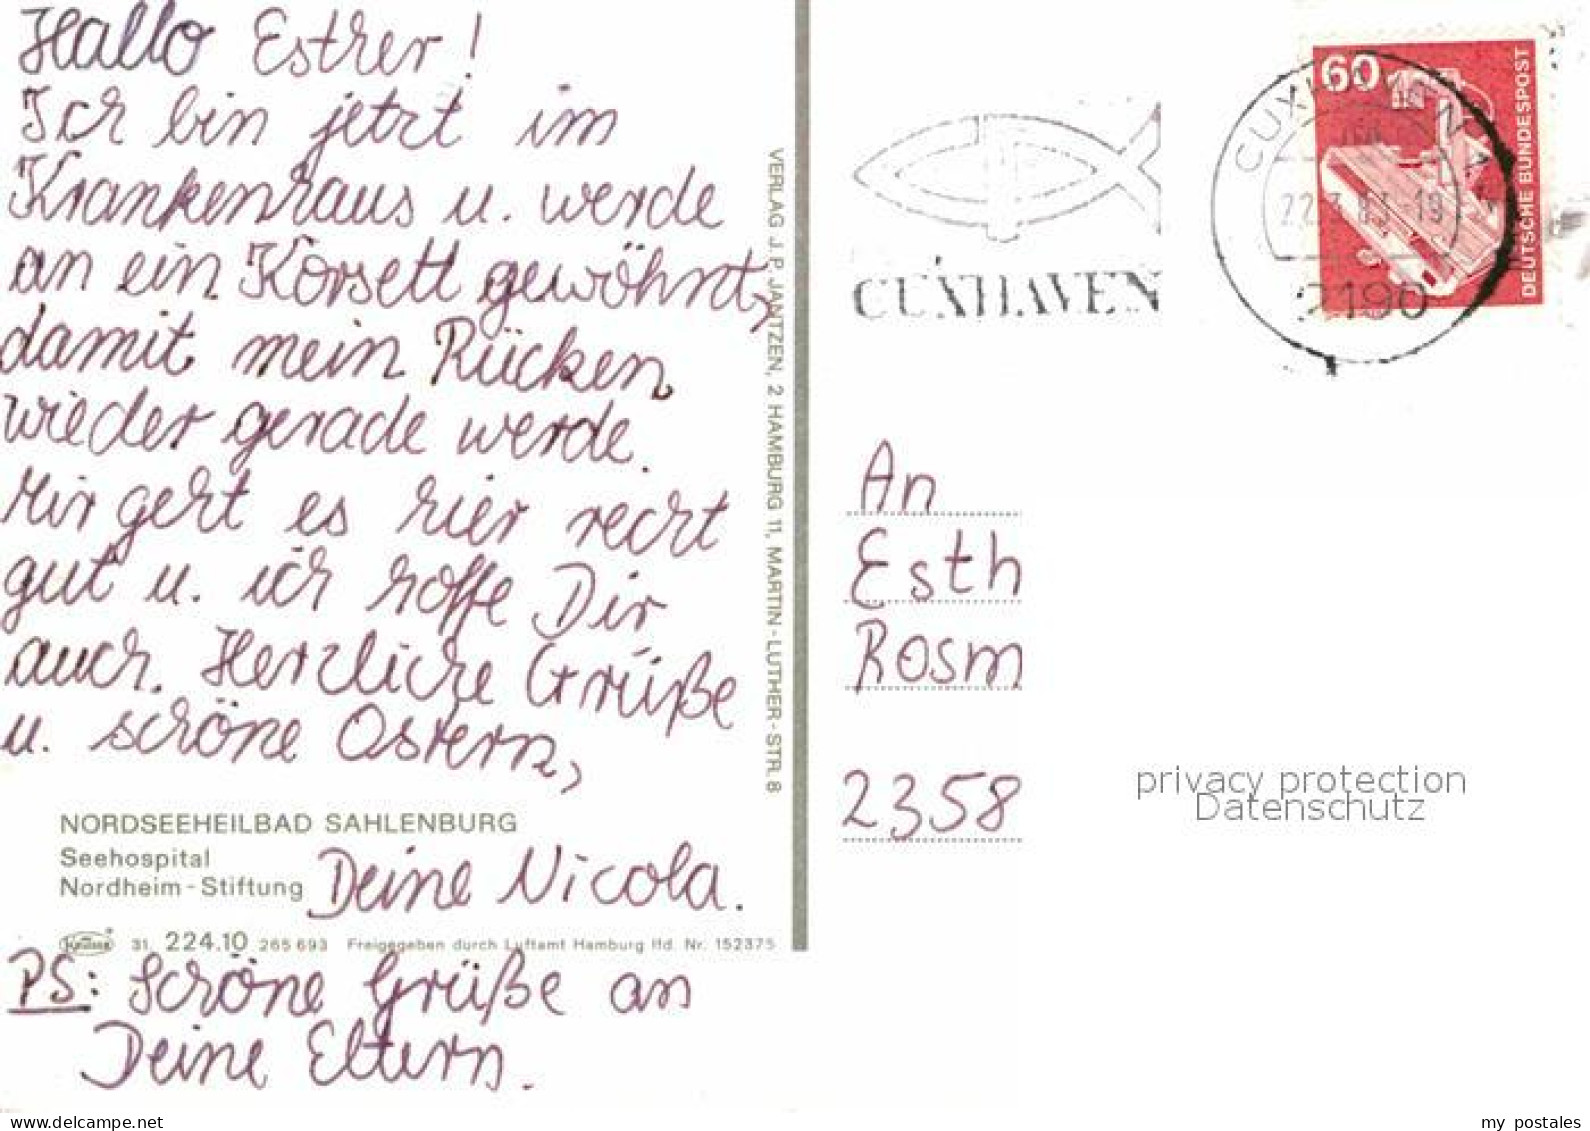 Hallo Esther!
Ich bin jetzt im
Krankenhaus u. werde
an ein Korsett gewöhnt,
damit mein Rücken
wieder gerade werde.
Mir geht es hier recht
gut u. ich hoffe Dir
auch. Herzliche Grüße
u. schöne Ostern,
NORDSEEHEILBAD SAHLENBURG
Seehospital
Nordheim-Stiftung
Deine Nicola.
31. 224.10 265 693 Freigegeben durch Luftamt Hamburg lfd. Nr. 152375
PS: Schöne Grüße an
Deine Eltern.
VERLAG J. P. JANTZEN, 2 HAMBURG 11, MARTIN-LUTHER-STR. 8
CUXHAVEN
CUXHAVEN
2190
60
DEUTSCHE BUNDESPOST
An
Esth
Rosm
2358
privacy protection
Datenschutz
www.delcampe.net
my_postales